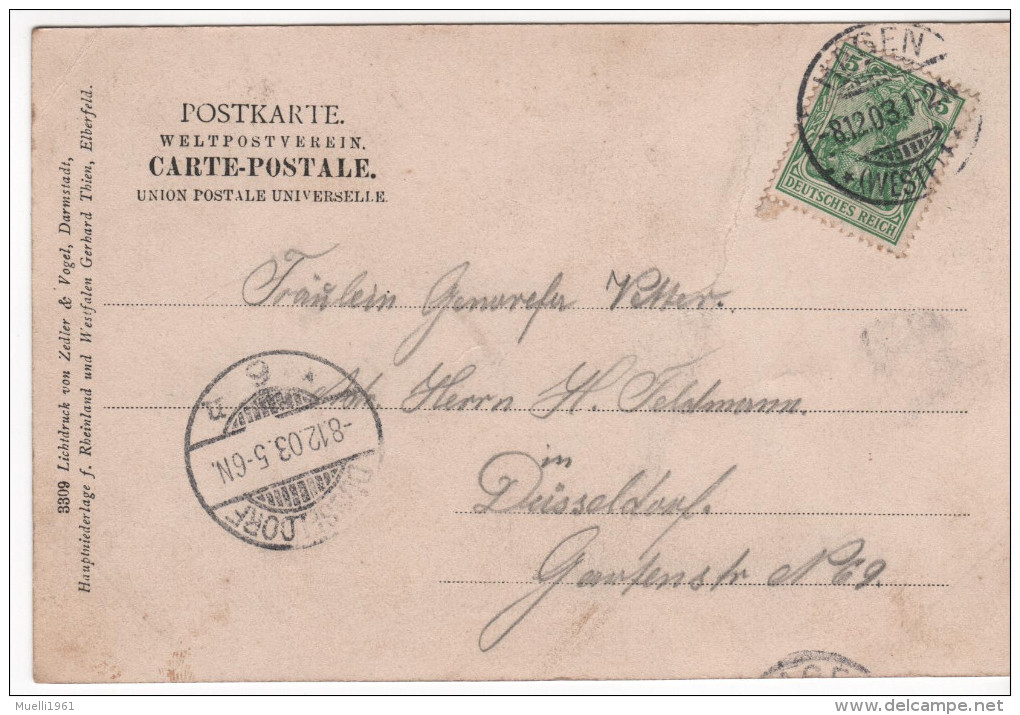 POSTKARTE.
WELTPOSTVEREIN.
CARTE-POSTALE.
UNION POSTALE UNIVERSELLE.
3309 Lichtdruck von Zedler & Vogel, Darmstadt,
Hauptniederlage f. Rheinland und Westfalen Gerhard Thien, Elberfeld.
HAGEN
-8.12.03.1-2
★(WESTF.)★
5 5
DEUTSCHES REICH
Fräulein Genovefa Vetter.
Adr. Herrn H. Feldmann.
in
Düsseldorf.
Gartenstr No 69.
DÜSSELDORF
-8.12.03.5-6N.
Muelli1961
delcampe.net